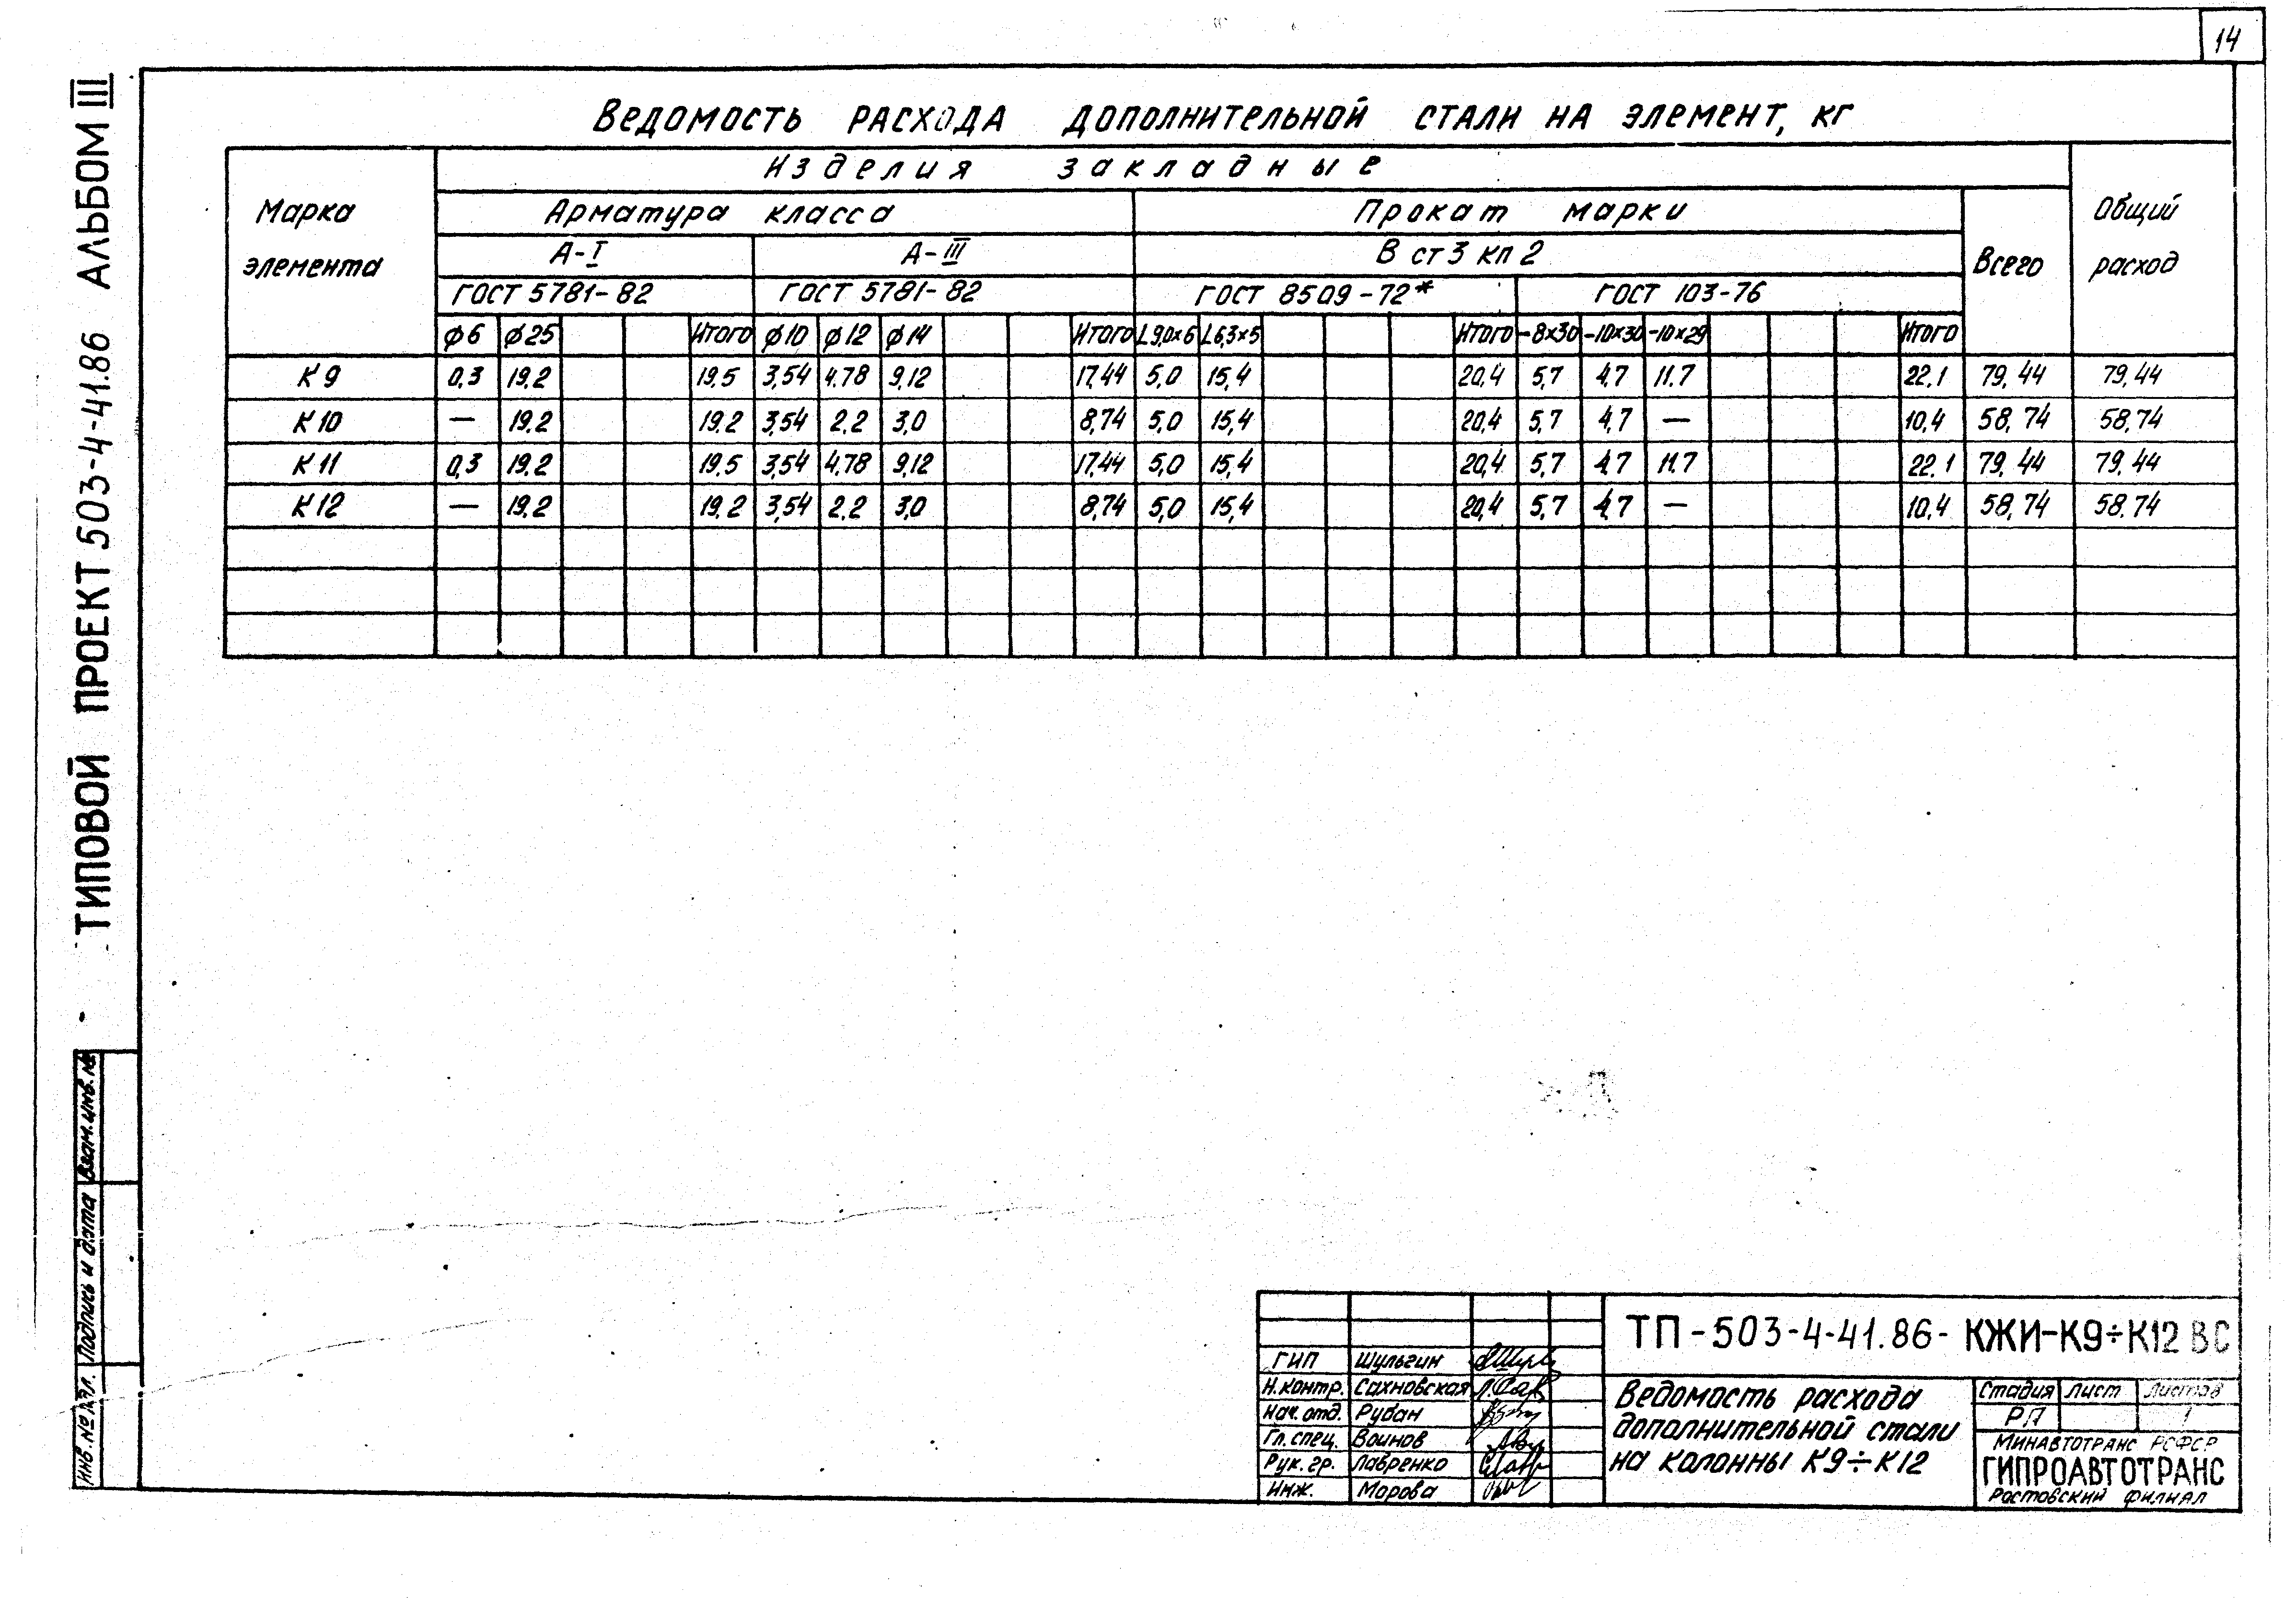 14
ТИПОВОЙ ПРОЕКТ 503-4-41.86 АЛЬБОМ III
Ведомость расхода дополнительной стали на элемент, кг
Марка элемента
Изделия закладные
Общий расход
Арматура класса
Прокат марки
Всего
А-I
А-III
В ст3 кп 2
ГОСТ 5781-82
ГОСТ 5781-82
ГОСТ 8509-72*
ГОСТ 103-76
φ6 φ25 Итого φ10 φ12 φ14 Итого L9,0×6 L6,3×5 Итого -8×30 -10×30 -10×29 Итого
К9 0,3 19.2 19.5 3,54 4.78 9,12 17,44 5,0 15,4 20,4 5,7 4,7 11.7 22.1 79,44 79,44
К10 — 19.2 19.2 3,54 2.2 3,0 8,74 5,0 15,4 20,4 5,7 4,7 — 10,4 58,74 58,74
К11 0,3 19.2 19.5 3,54 4,78 9,12 17,44 5,0 15,4 20,4 5.7 4,7 11.7 22.1 79.44 79.44
К12 — 19.2 19.2 3,54 2.2 3,0 8,74 5,0 15,4 20,4 5,7 4,7 — 10,4 58,74 58.74
Взам. инв. №
Подпись и дата
Инв. № подл.
ТП-503-4-41.86-КЖИ-К9÷К12 ВС
ГИП Шульгин
Н.контр. Сахновская
Нач. отд. Рубан
Гл. спец. Воинов
Рук. гр. Лавренко
Инж. Морова
Ведомость расхода
дополнительной стали
на колонны К9÷К12
Стадия Лист Листов
РП 1
Минавтотранс РСФСР
ГИПРОАВТОТРАНС
Ростовский филиал